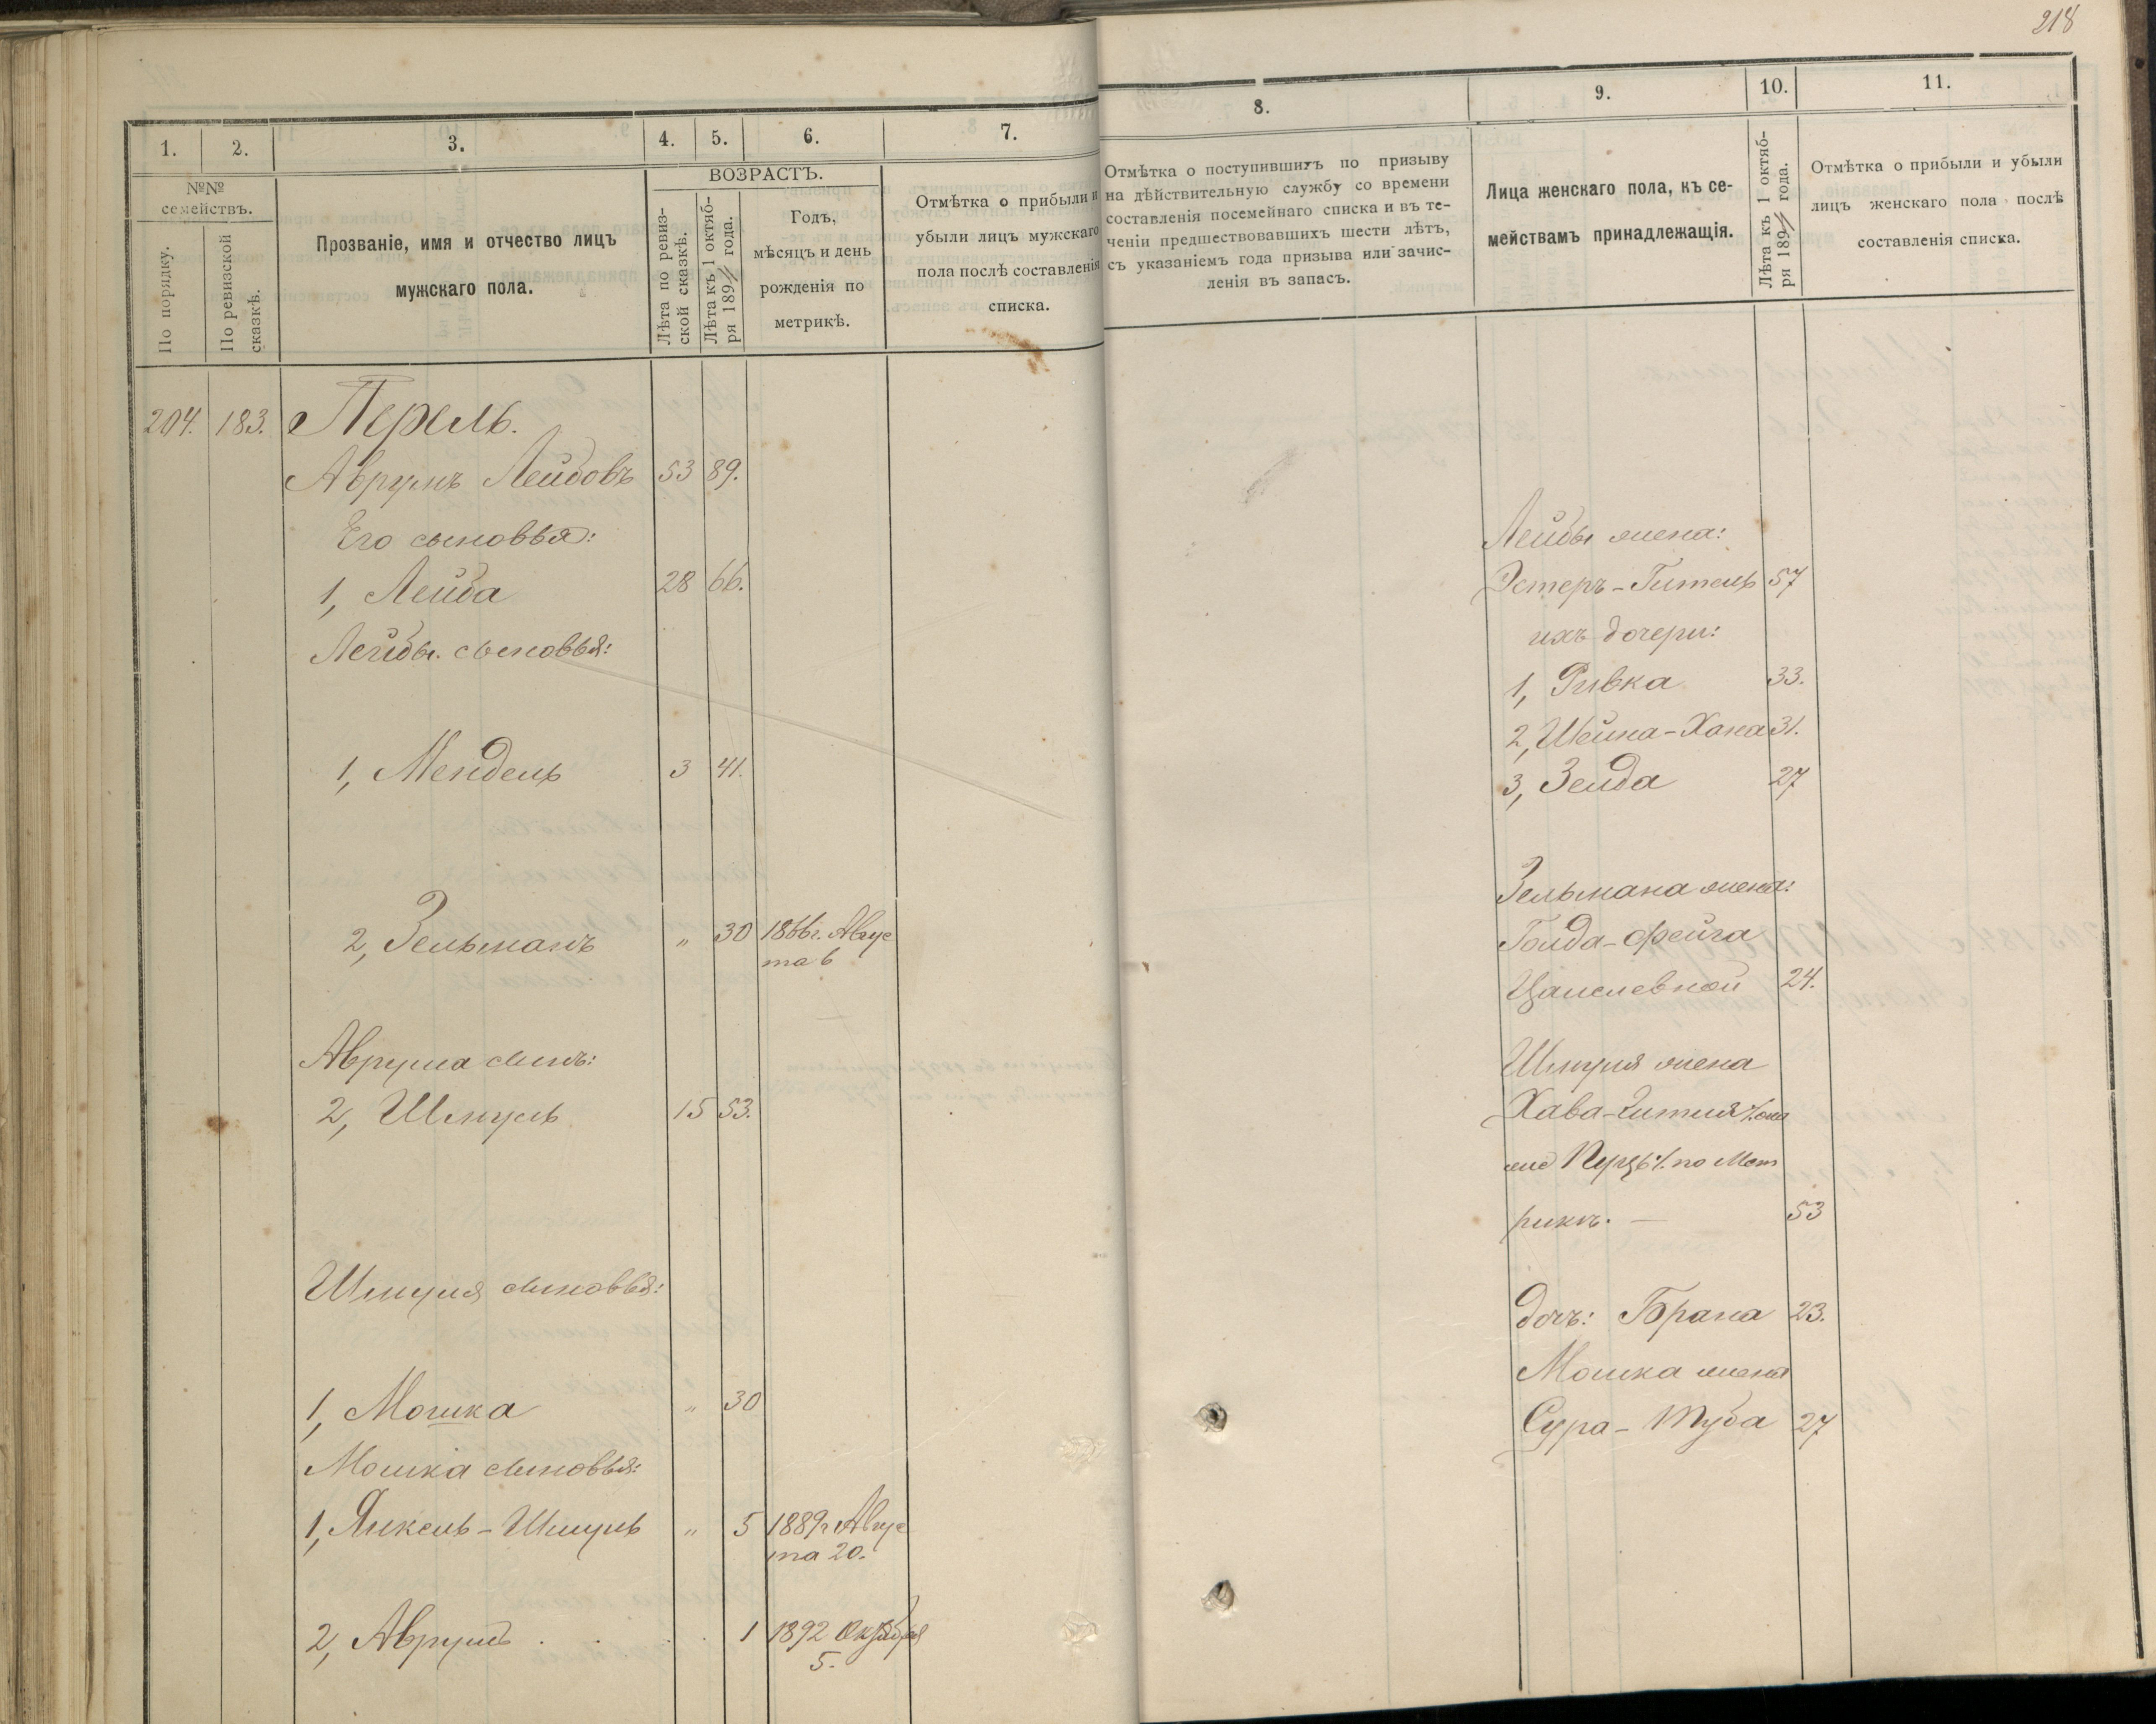 218
1.
2.
3.
4.
5.
6.
7.
8.
9.
10.
11.
№№
семействъ.
По порядку.
По ревизской
сказкѣ.
Прозваніе, имя и отчество лицъ
мужскаго пола.
ВОЗРАСТЪ.
Лѣта по ревиз-
ской сказкѣ.
Лѣта къ 1 октяб-
ря 189 года.
Годъ,
мѣсяцъ и день
рожденія по
метрикѣ.
Отмѣтка о прибыли и
убыли лицъ мужскаго
пола послѣ составленія
списка.
Отмѣтка о поступившихъ по призыву
на дѣйствительную службу со времени
составленія посемейнаго списка и въ те-
ченіи предшествовавшихъ шести лѣтъ,
съ указаніемъ года призыва или зачис-
ленія въ запасъ.
Лица женскаго пола, къ се-
мействамъ принадлежащія.
Лѣта къ 1 октяб-
ря 189 года.
Отмѣтка о прибыли и убыли
лицъ женскаго пола послѣ
составленія списка.
204. 183. Перель.
Аврумъ Лейбовъ 53 89.
Его сыновья:
1, Лейба 28 66.
Лейбы сыновья:
1, Мендель 3 41.
2, Зельманъ " 30 1866 г. Авгус
та 6
Аврума сынъ:
2, Шмуль 15 53.
Шмуля сыновья:
1, Мошка " 30
Мошка сыновья:
1, Янкель-Шмуль " 5 1889 г Авгус
та 20.
2, Аврумъ . . . . 1 1892 Октября
5.
Лейбы жена:
Эстеръ-Гитель 57
ихъ дочери:
1, Ривка 33.
2, Шейна-Хана 31.
3, Зелда 27
Зельмана жена:
Голда-Фейга
24.
Шмуля жена
Хава- она
же по Мет
рикѣ. — 53
дочь: Брана 23.
Мошка жена
Сура-Туба 27